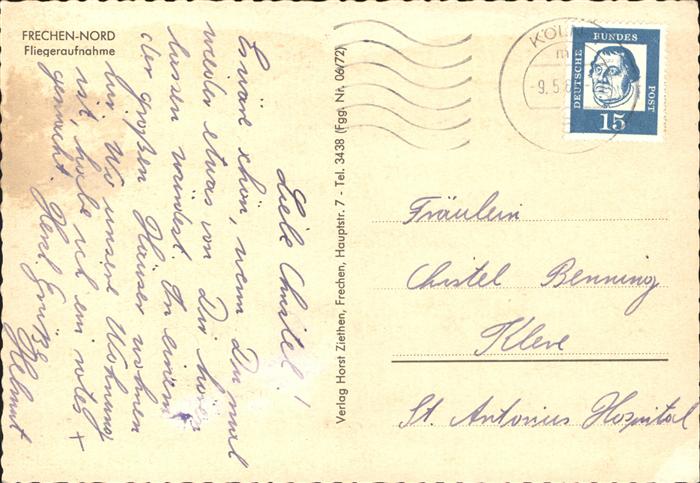 FRECHEN-NORD
Fliegeraufnahme
Liebe Christel!
Es wäre schön, wenn Du mal
wieder etwas von Dir hören
lassen würdest. In einem
der großen Häuser wohnen
wir. Wo unsere Wohnung
ist, habe ich ein rotes +
gemacht. Herzl. Grüße
Helmut
Verlag Horst Ziethen, Frechen, Hauptstr. 7 - Tel. 3438 (Fgg. Nr. 06/72)
KÖLN
-9.5.6
DEUTSCHE
BUNDES
POST
15
Fräulein
Christel Benning
Kleve
St. Antonius Hospital